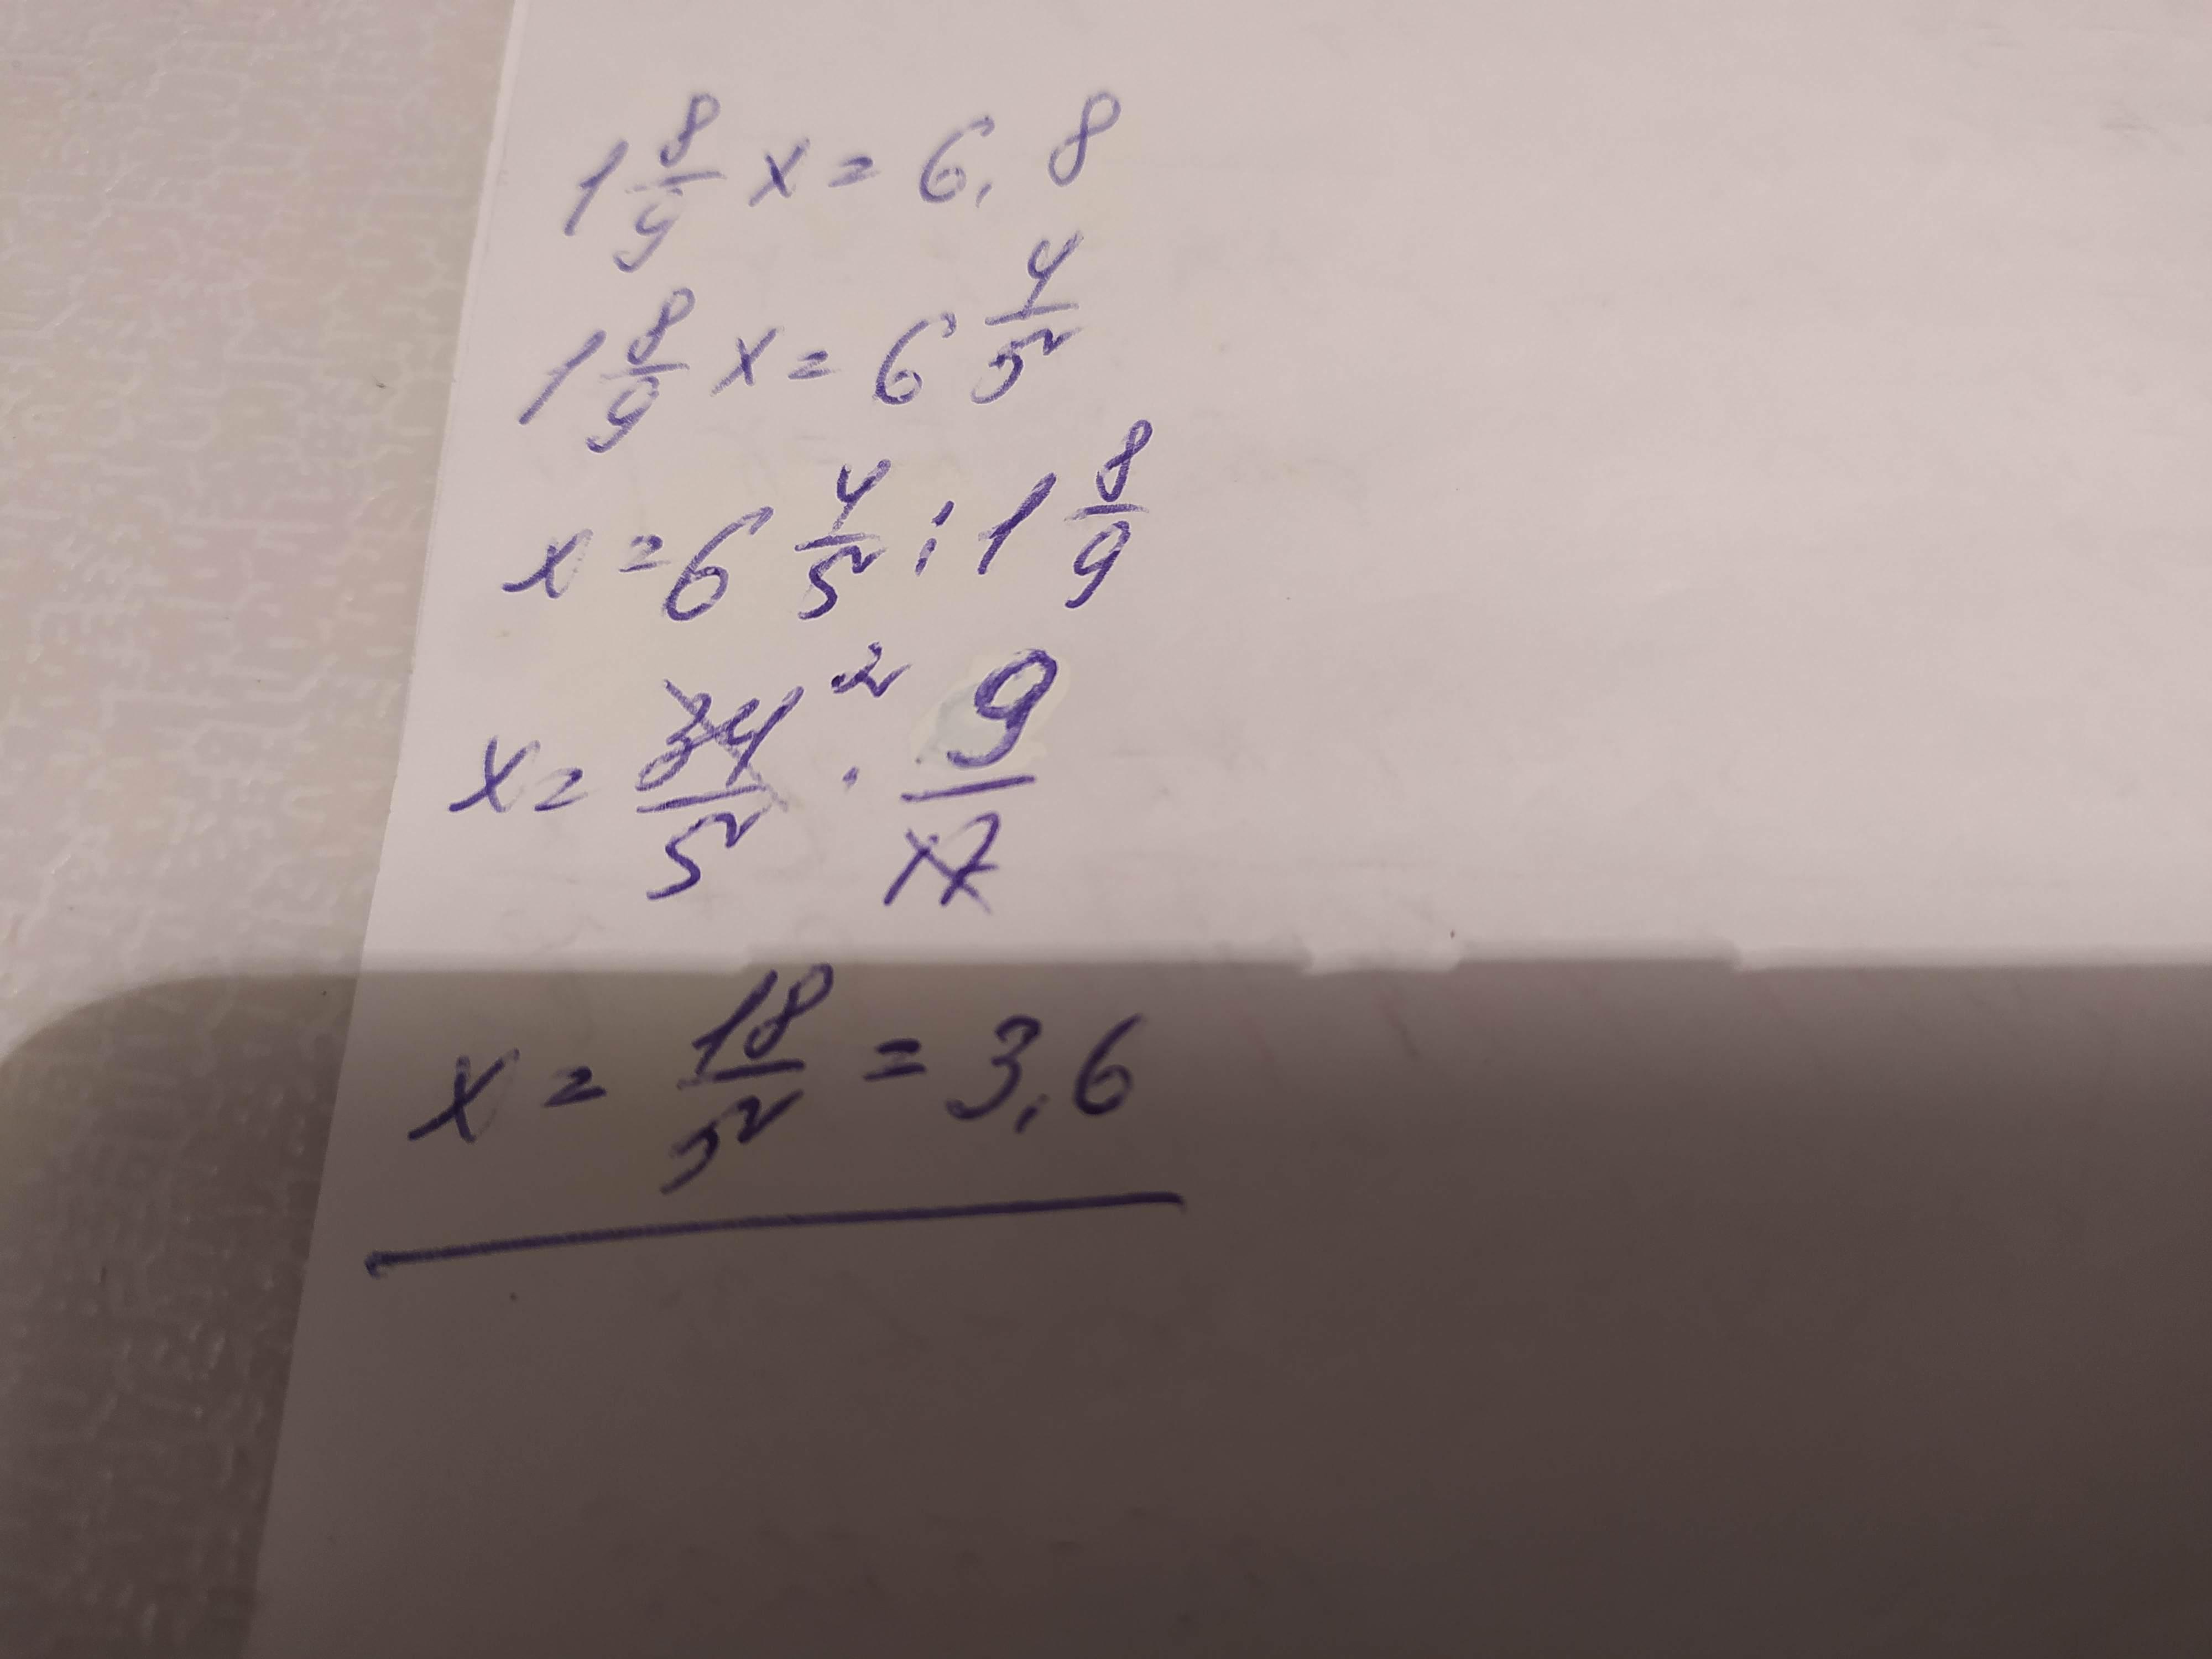 1 8/9 x = 6,8
1 8/9 x = 6 4/5
x = 6 4/5 : 1 8/9
x = 34/5 ² · 9/17
x = 18/5 = 3,6